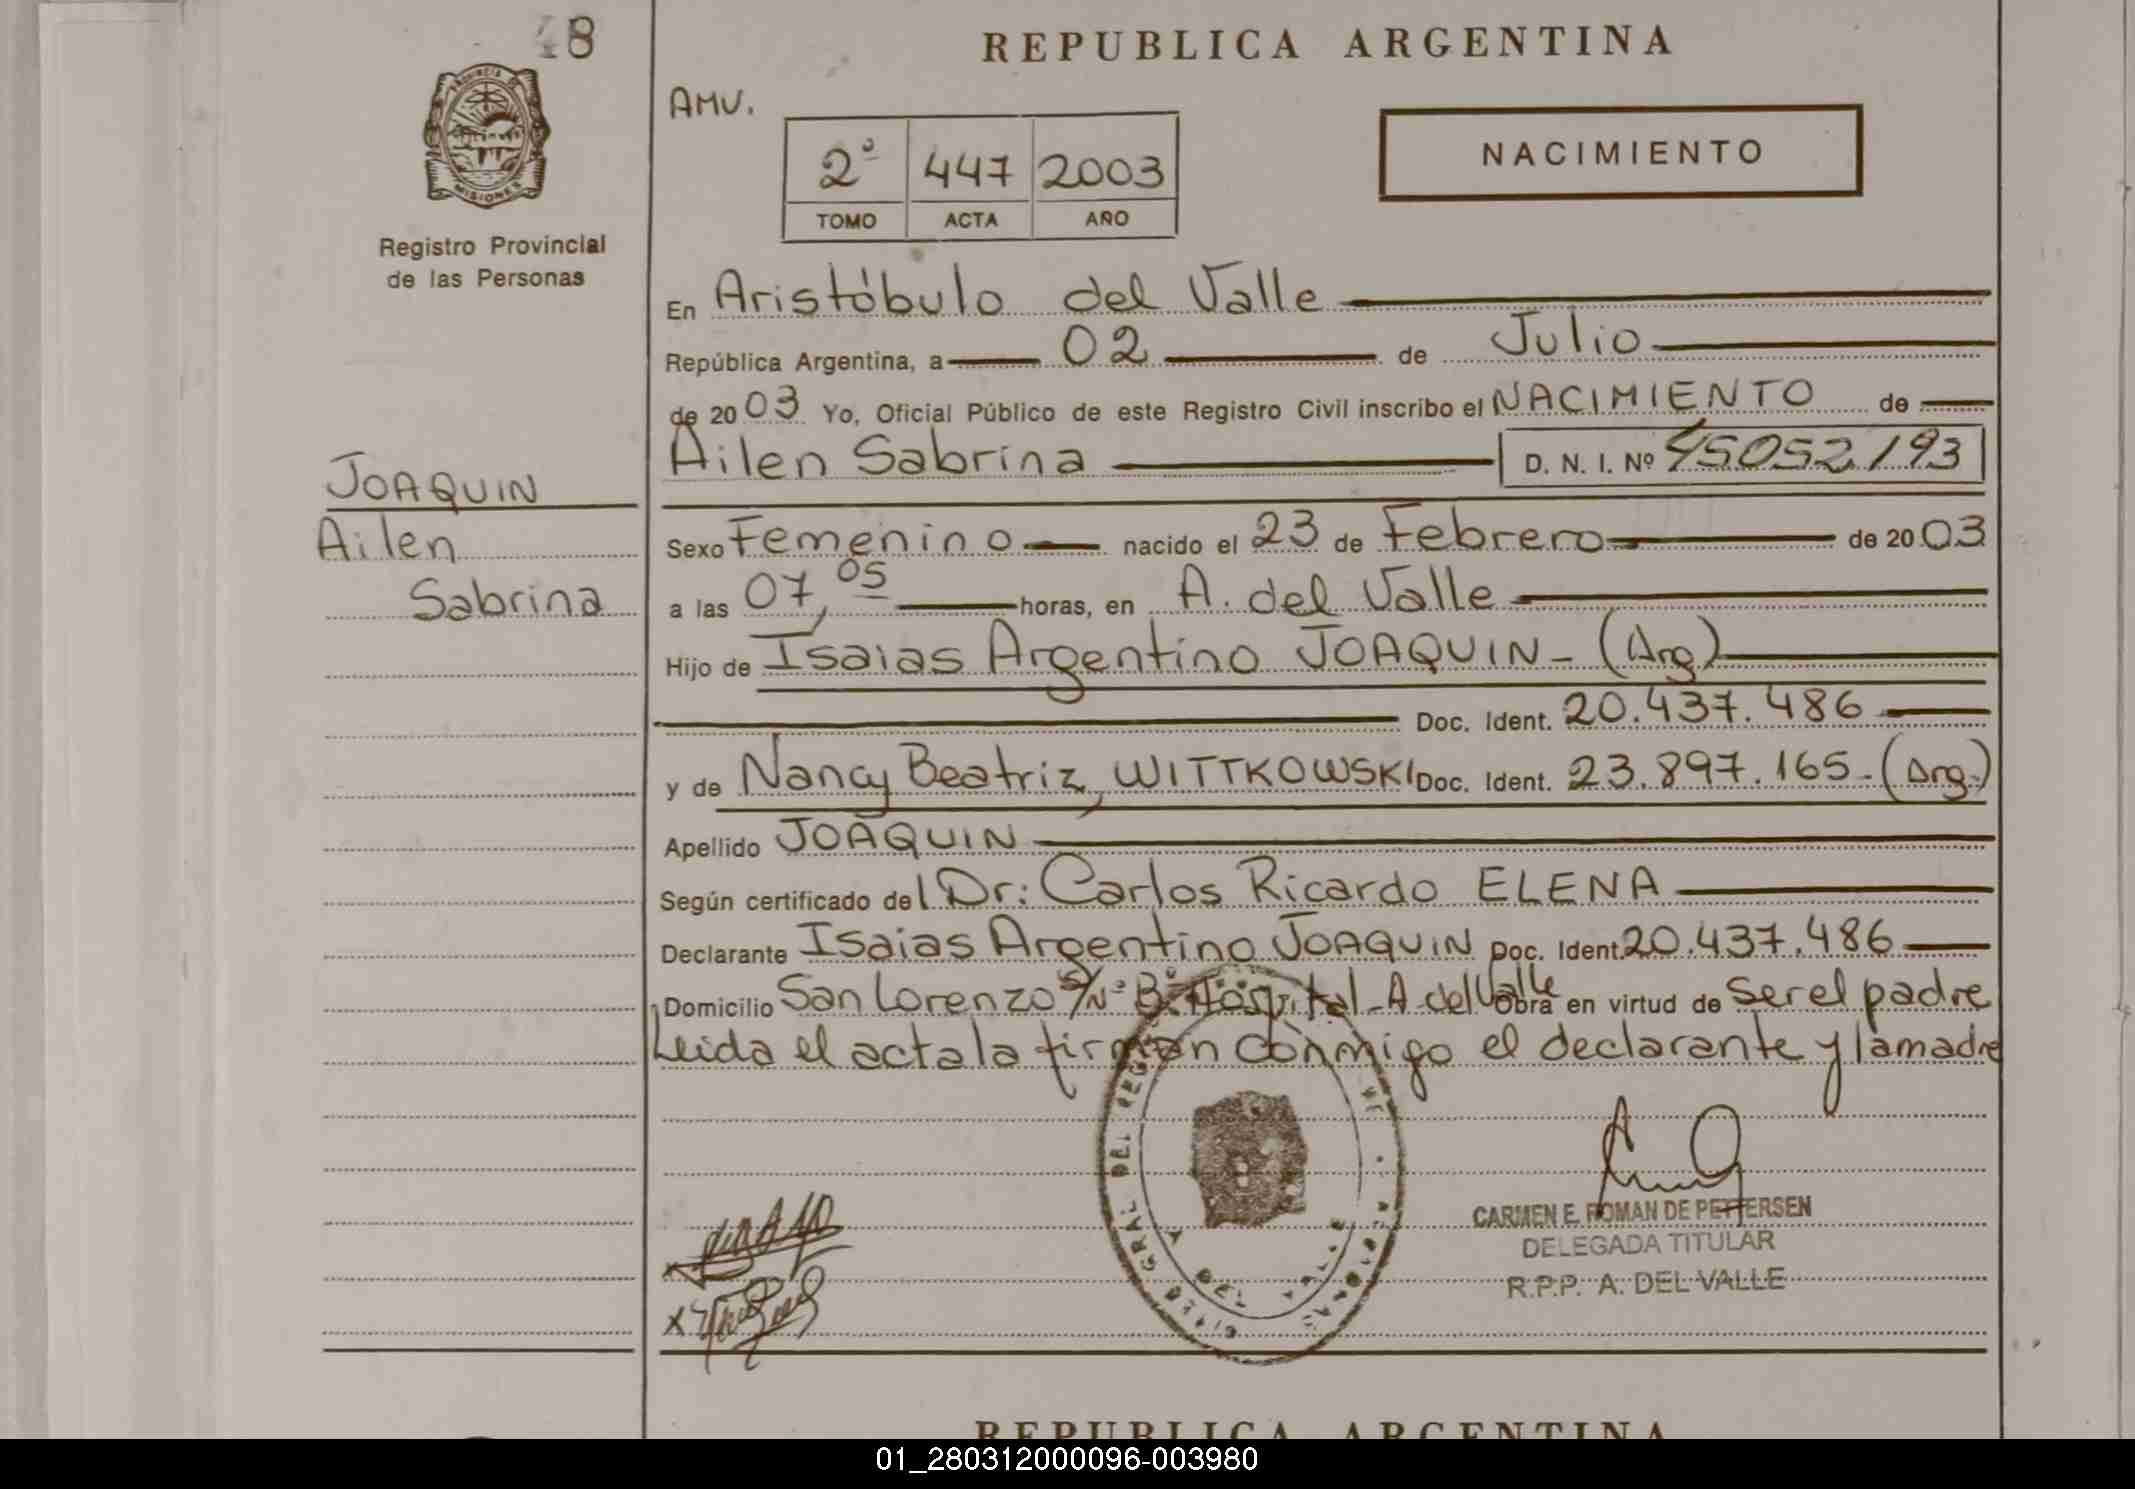 48
REPUBLICA ARGENTINA
AMV.
NACIMIENTO
2º 447 2003
TOMO ACTA AÑO
PROVINCIA DE
MISIONES
Registro Provincial
de las Personas
En Aristóbulo del Valle
República Argentina, a 02 de Julio
de 2003 Yo, Oficial Público de este Registro Civil inscribo el NACIMIENTO de
Ailen Sabrina D. N. I. Nº 45052193
JOAQUIN
Ailen
Sabrina
Sexo Femenino nacido el 23 de Febrero de 2003
a las 07,05 horas, en A. del Valle
Hijo de Isaias Argentino JOAQUIN - (Arg)
Doc. Ident. 20.437.486
y de Nancy Beatriz, WITTKOWSKI Doc. Ident. 23.897.165 - (Arg.)
Apellido JOAQUIN
Según certificado del Dr: Carlos Ricardo ELENA
Declarante Isaias Argentino JOAQUIN Doc. Ident. 20.437.486
Domicilio San Lorenzo S/Nº Bº Hospital - A del Valle Obra en virtud de ser el padre
Leida el acta la firman conmigo el declarante y la madre
CARMEN E. ROMAN DE PETTERSEN
DELEGADA TITULAR
R.P.P. A. DEL VALLE
REPUBLICA ARGENTINA
01_280312000096-003980